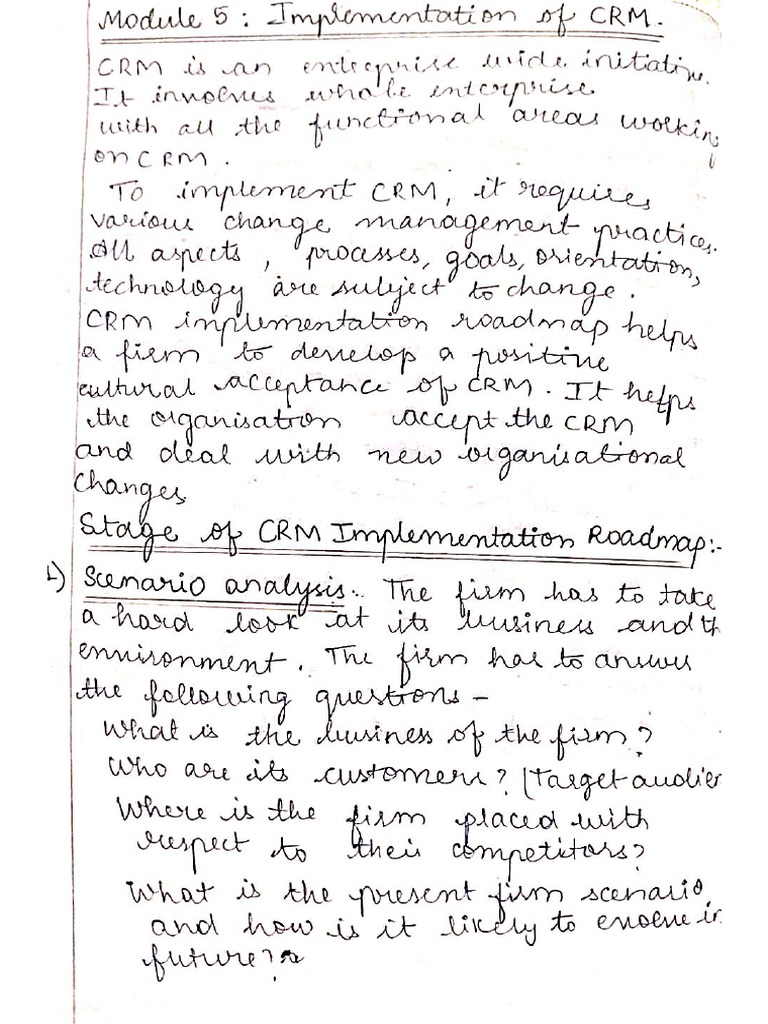 Module 5 : Implementation of CRM.
CRM is an enterprise wide initiative.
It involves whole enterprise
with all the functional areas workin
on CRM.
To implement CRM, it requires
various change management practices.
All aspects, processes, goals, orientation,
technology are subject to change.
CRM implementation roadmap helps
a firm to develop a positive
cultural acceptance of CRM. It helps
the organisation accept the CRM
and deal with new organisational
changes
Stage of CRM Implementation Roadmap:-
1) Scenario analysis:. The firm has to take
a hard look at its business and th
environment. The firm has to answer
the following questions -
What is the business of the firm?
Who are its customers? (Target audien
Where is the firm placed with
respect to their competitors?
What is the present firm scenario,
and how is it likely to evolve in
future?